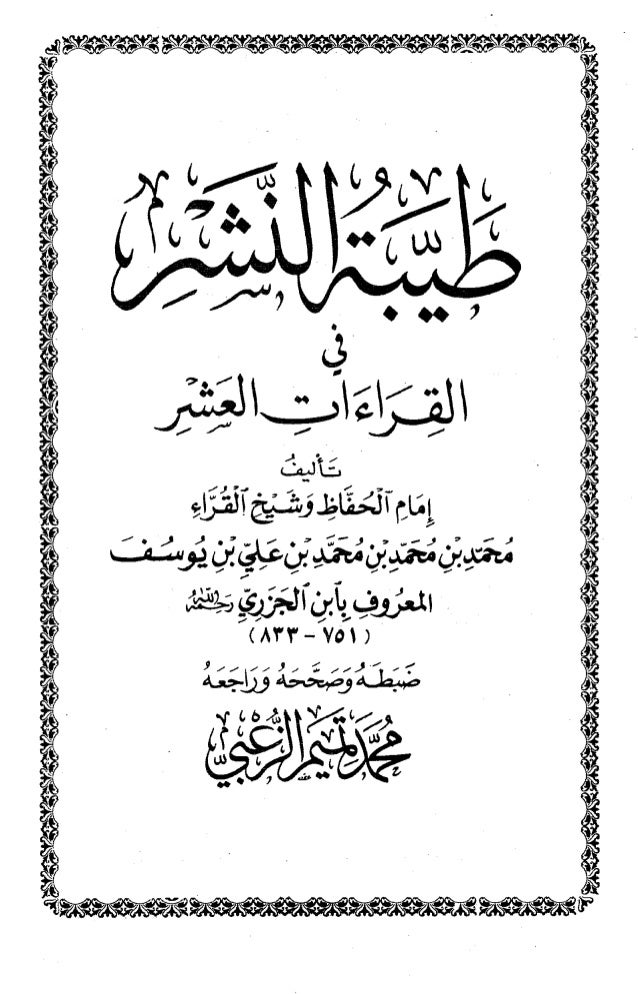 طَيِّبَةُ النَّشْرِ
فِي
القِرَاءَاتِ العَشْرِ
تَأليفُ
إِمَامِ ٱلْحُفَّاظِ وَشَيْخِ ٱلْقُرَّاءِ
مُحَمَّدِ بْنِ مُحَمَّدِ بْنِ مُحَمَّدِ بْنِ عَلِيِّ بْنِ يُوسُفَ
المَعْرُوفِ بِٱبْنِ الجَزَرِيِّ رَحِمَهُ اللَّه
(٧٥١ - ٨٣٣)
ضَبَطَهُ وَصَحَّحَهُ وَرَاجَعَهُ
مُحَمَّد تَمِيم الزُّعْبِي